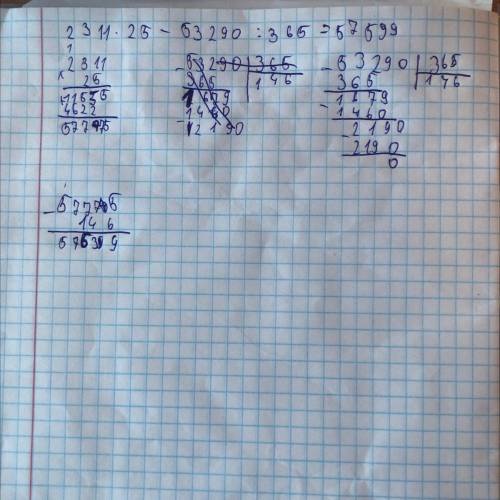 2311 · 25 - 53290 : 365 = 57599
1
2311
× 25
11555
4622
57775
- 53290 | 365
365 | 146
1679
- 1460
- 2190
- 53290 | 365
365 | 146
1679
- 1460
- 2190
2190
0
- 57775
146